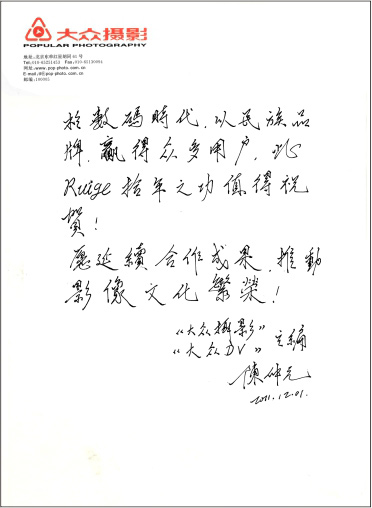 大众摄影
POPULAR PHOTOGRAPHY
地址:北京东单红星胡同61号
网址:www.pop-photo.com.cn
邮编:100005
於數碼時代,以民族品
牌,贏得众多用户,此
Ruige拾年之功值得祝
賀!
愿延續合作成果,推動
影像文化繁榮!
《大众攝影》
《大众DV》主編
陳仲元
2011.12.01.